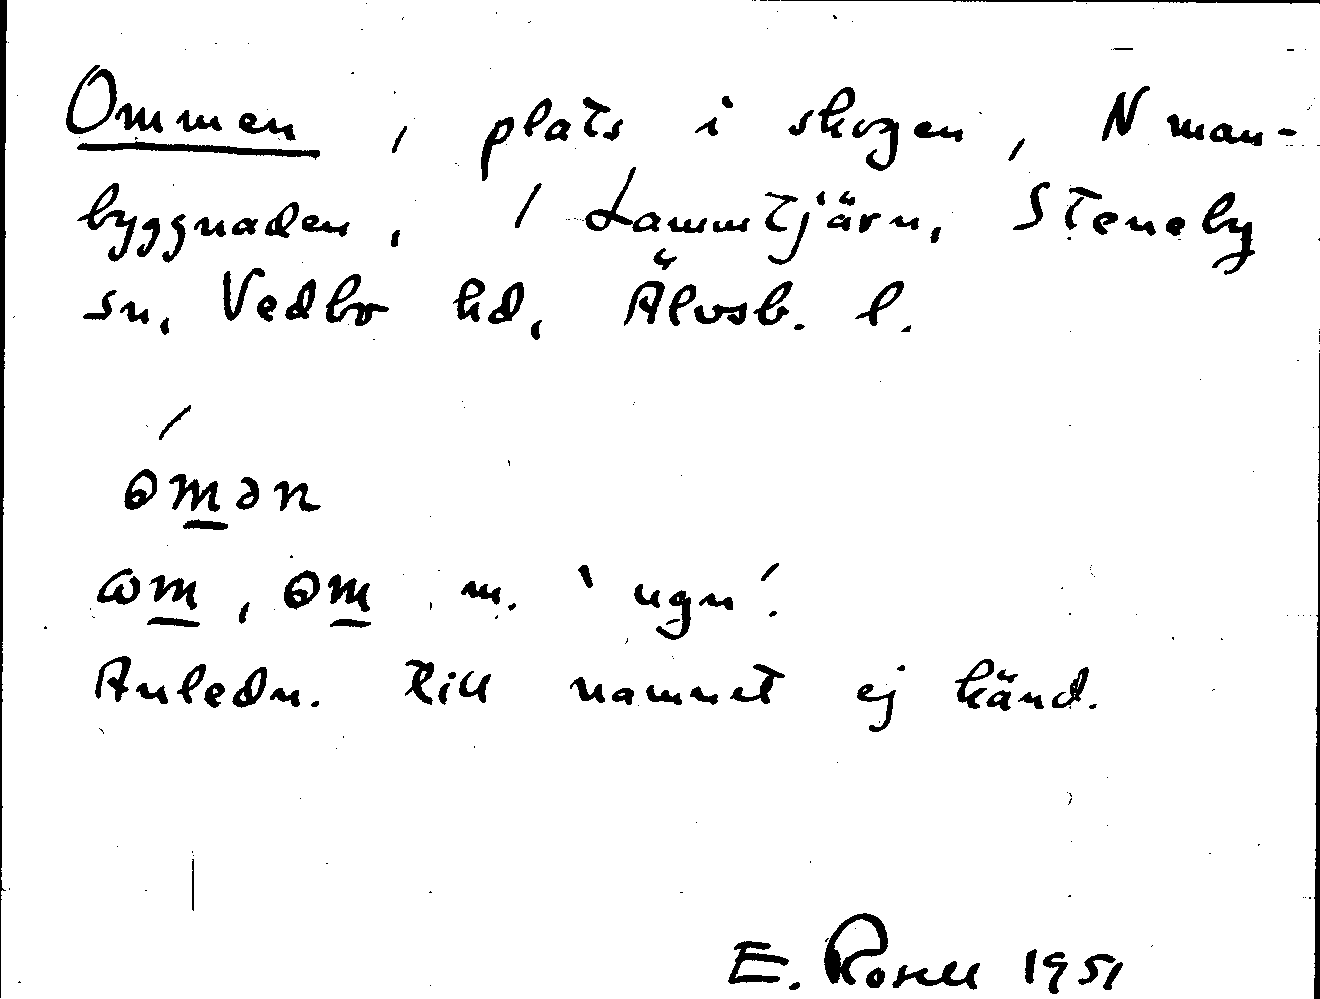 Ommen, plats i skogen, N man-
byggnaden, 1 Lammtjärn, Steneby
sn, Vedbo hd, Älvsb. l.
ɵmən
ɷm, ɵm m. 'ugn'.
Anledn. till namnet ej känd.
E. Rosell 1951